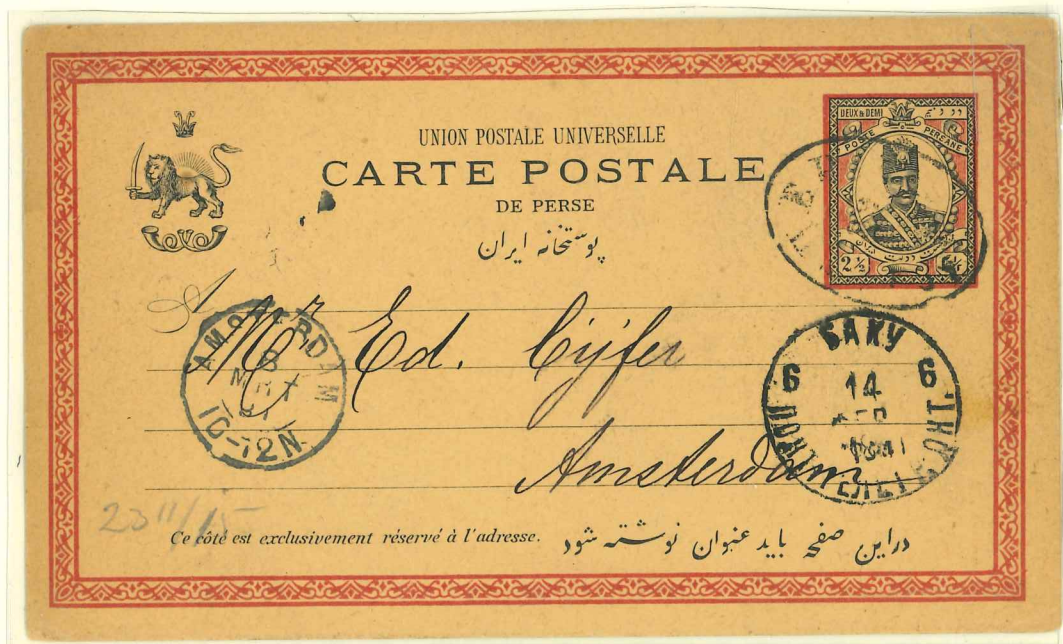 UNION POSTALE UNIVERSELLE
CARTE POSTALE
DE PERSE
پوستخانه ایران
DEUX & DEMI
POSTE PERSANE
2½
A Mr Ed. Cijfer
Amsterdam
AMSTERDAM
8
MRT
10-12N
БАКУ
6 14 6
23 11/15
Ce côté est exclusivement réservé à l'adresse.
دراین صفحه باید عنوان نوشته شود